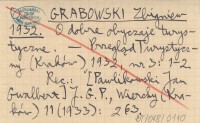 GRABOWSKI Zbigniew
1932. O dobre obyczaje turys-
tyczne. — Przegląd Turystycz-
ny (Kraków) 1932, nr 3: 1-2
Rec.: [Pawlikowski Jan
Gwalbert] J. G. P., Wierchy (Kra-
ków) 11 (1933): 263